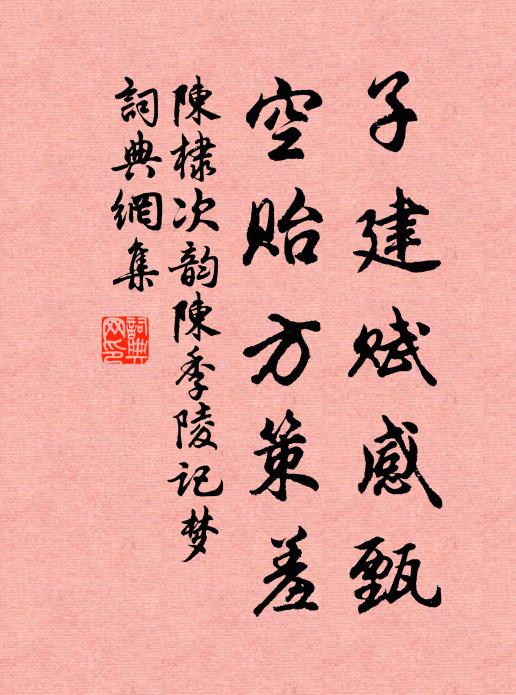 子建赋感甄
空贻方策羞
陳棣次韵陳季陵记梦
詞典網集
詞典網印